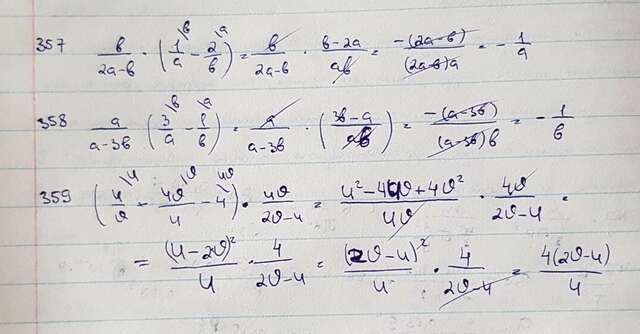 357 в/(2a-в) · (1\в/a - 2\a/в) = в/(2a-в) · (в-2a)/(aв) = -(2a-в)/((2a-в)a) = -1/a
358 a/(a-3в) · (3\в/a - 1\a/в) = a/(a-3в) · ((3в-a)/(aв)) = -(a-3в)/((a-3в)в) = -1/в
359 (u\u/v + 4v\v/u - 4\uv) · 4v/(2v-u) = (u²-4uv+4v²)/(uv) · 4v/(2v-u) =
= (u-2v)²/u · 4/(2v-u) = (2v-u)²/u · 4/(2v-u) = 4(2v-u)/u